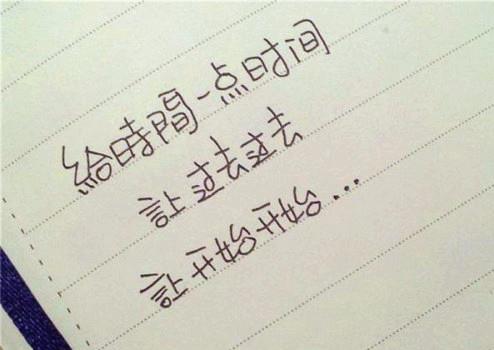 給時間一点时间
讓过去过去
讓开始开始...